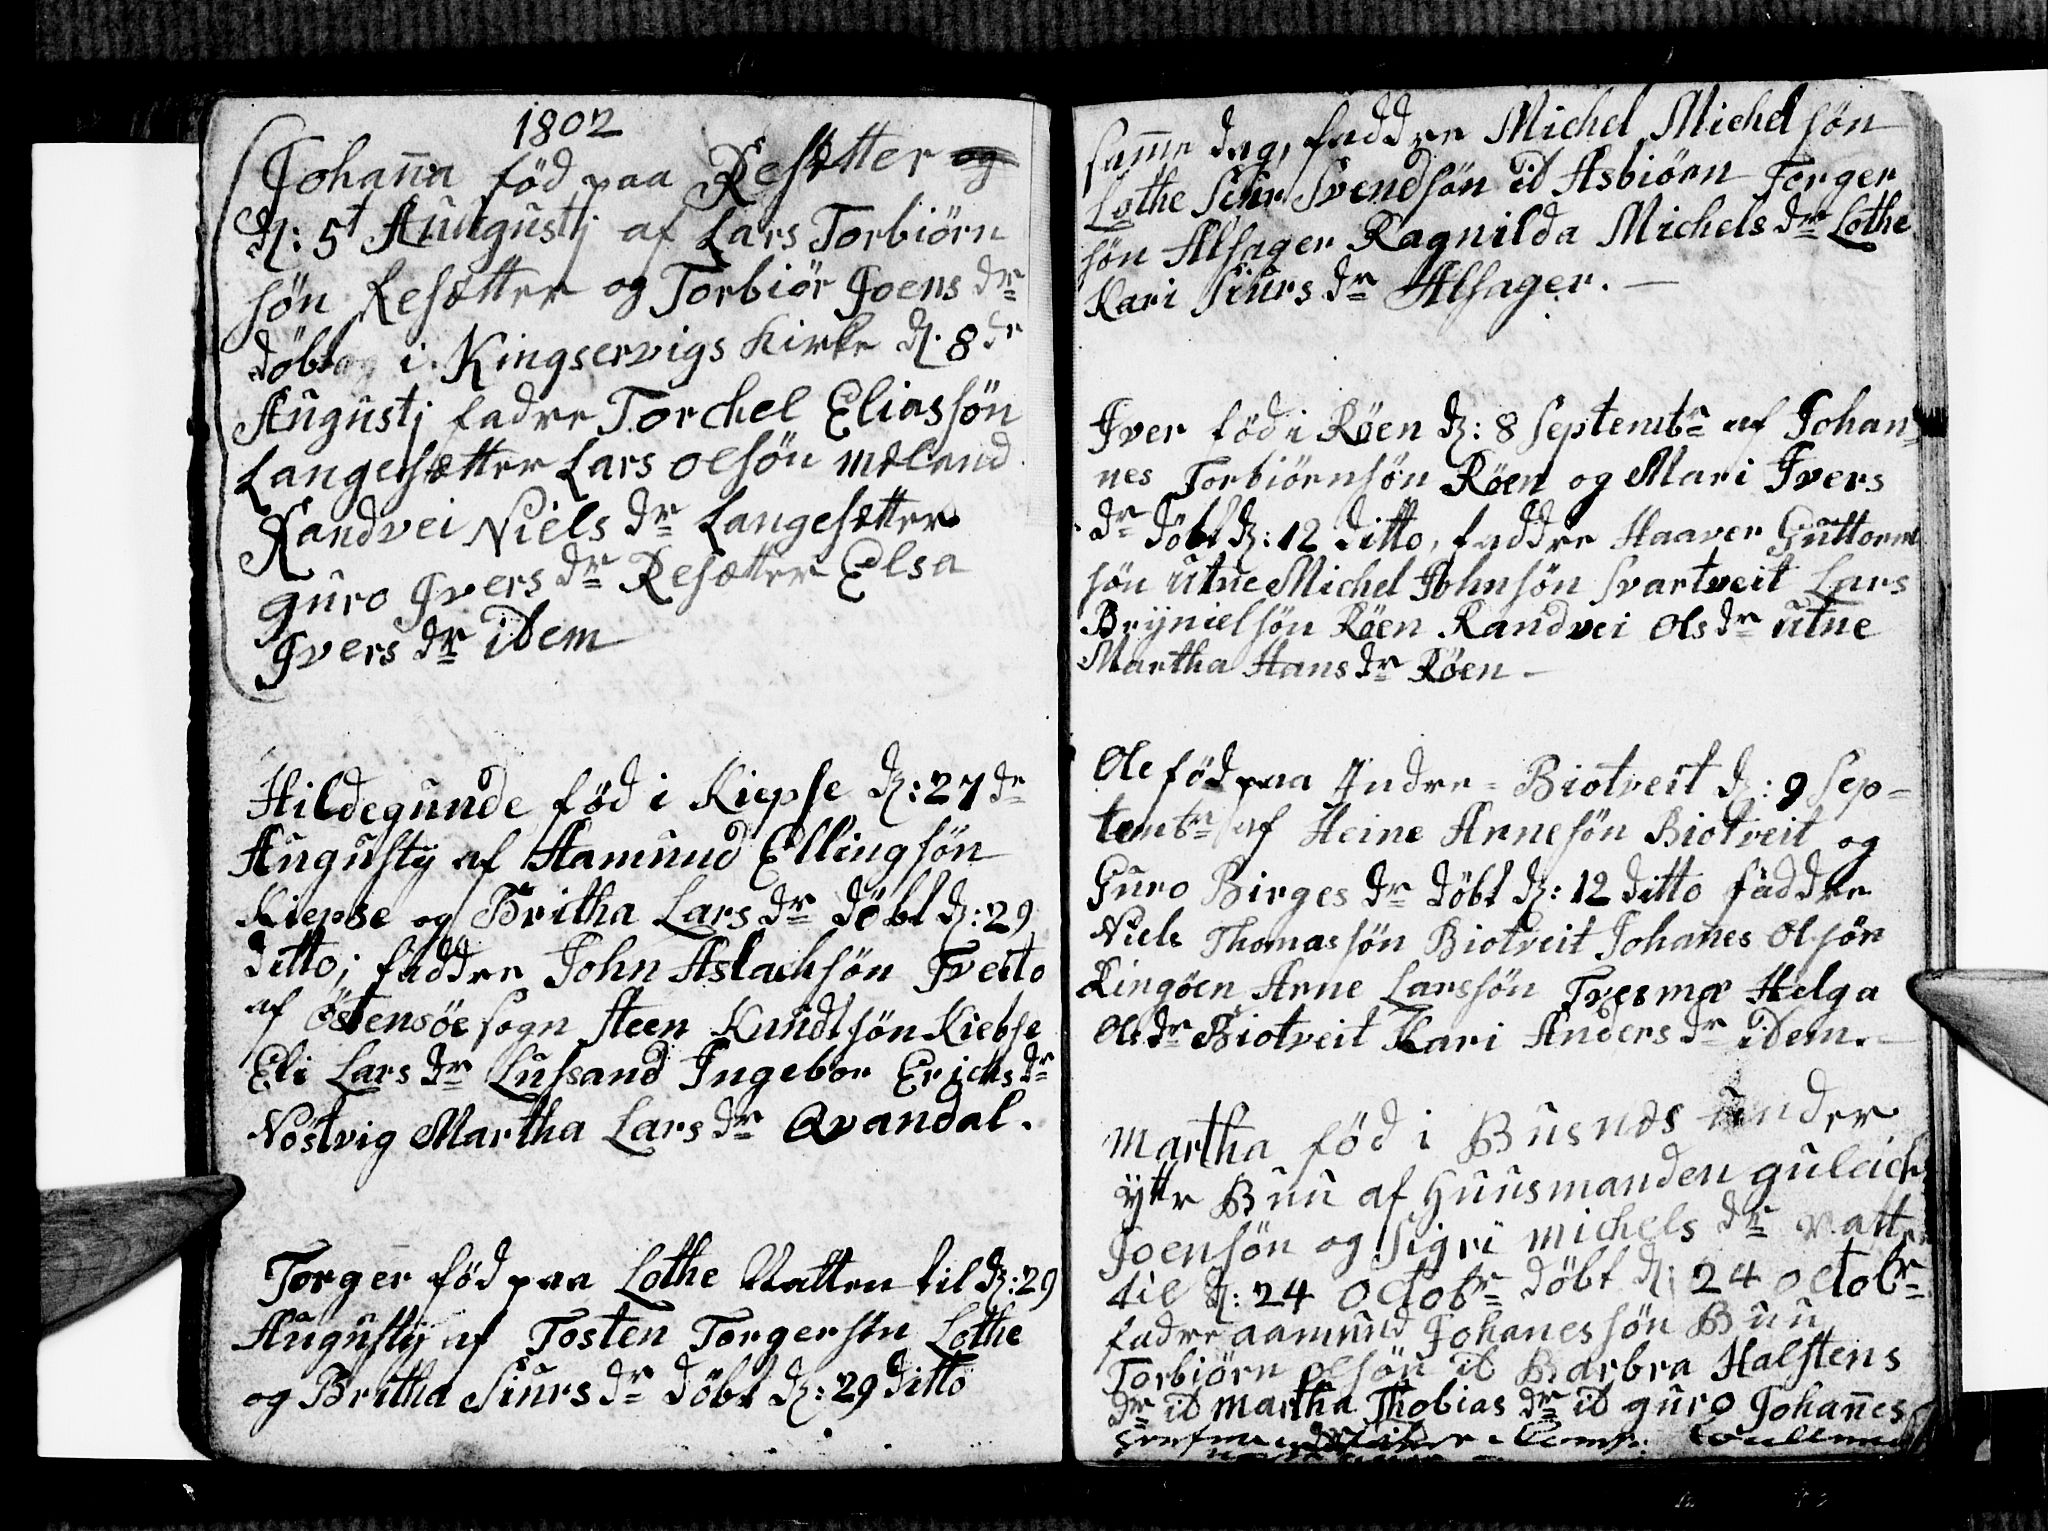 1802
Johanna föd paa Resætter og
d: 5t Augustj af Lars Torbiörn
sön Resætter og Torbiör Joens dr
döbt i Kingservigs Kirke d. 8de
Augustj fadre Torchel Eliassön
Langesætter Lars olsön mæland
Randvei Niels dr Langesætter
guro Jvers dr Resætter Elsa
Jvers dr idem
Hildegunde föd i Kiepse d: 27de
Augustij af Aamund Ellingsön
Kiepse og Britha Lars dr döbt d: 29
ditto; faddre John Aslachsön Tveito
af Östensöe sogn Steen Knudtsön Kiebse
Eli Lars dr Lussand Ingebor Erichs dr
Nöstvig Martha Lars dr Qvandal.
Torger föd paa Lothe Natten til d: 29
Augustij af Tosten Torgersön Lothe
og Britha Siurs dr döbt d: 29 ditto
samme dag, faddre Michel Michelsön
Lothe Siur Svendsön id Asbiörn Torger
sön Alsager Ragnilda Michels dr Lothe
Kari Siurs dr Alsager.
Jver föd i Röen d: 8 Septembr af Johan-
nes Torbiörnsön Röen og Mari Jvers
dr döbt d: 12 ditto, faddre Haaver Guttorm
sön Utne Michel Johnsön Svartveit Lars
Brÿnielsön Röen Randvei Ols dr utne
Martha Hans dr Röen -
Ole föd paa Indre-Biotveit d: 9 Sep-
tembr af Heine Arnesön Biotveit og
Guro Birges dr döbt d: 12 ditto faddre
Niels Thomassön Biotveit Johanes Olsön
Ringöen Arne Larssön Tvesmæ Helga
Ols dr Biotveit Kari Anders dr idem.-
Martha föd i Busnæs under
ÿttr Buu af Huusmanden guleich
Joensön og Sigri michels dr natten
til d: 24 octobr döbt d: 24 octobr
fadre aamund Johanessön Buu
Torbiörn olsön id Barbra Halstens
dr id martha Thobias dr id guro Johannes